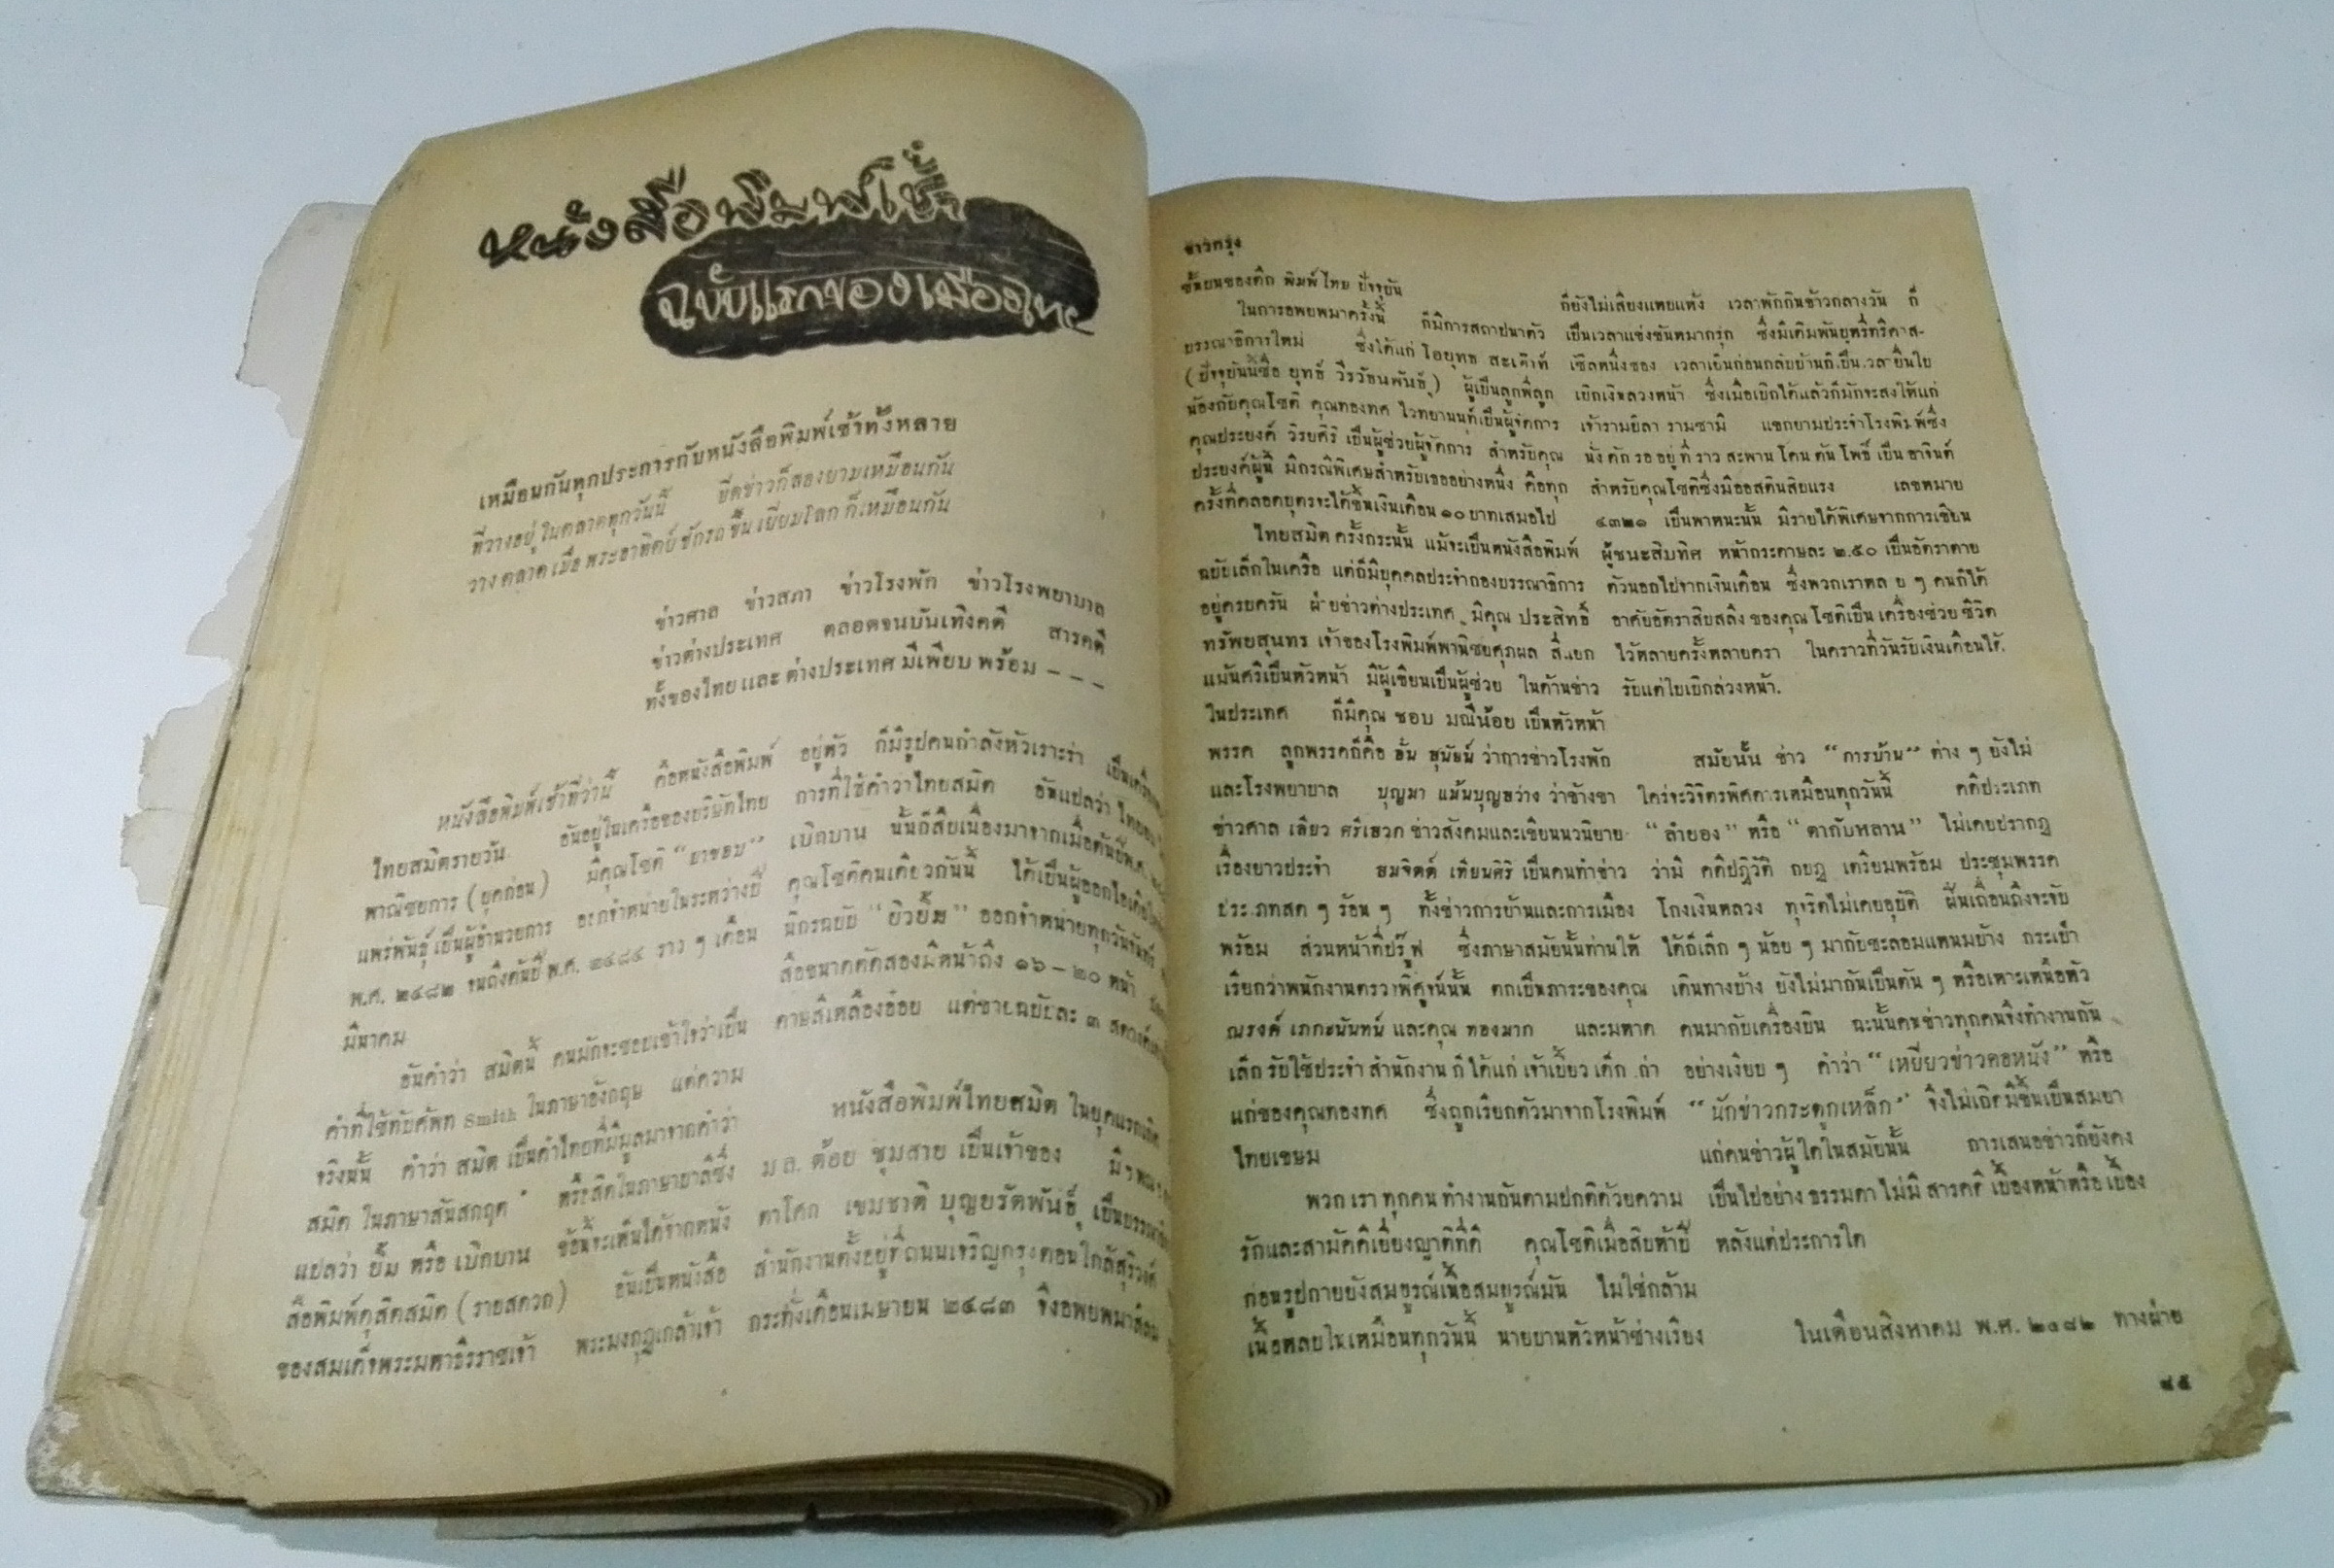 หนังสือพิมพ์เช้า
ฉบับแรกของเมืองไทย
เหมือนกันทุกประการกับหนังสือพิมพ์เช้าทั้งหลาย
ที่วางอยู่ในตลาดทุกวันนี้ ขีดข่าวก็สองยามเหมือนกัน
วางตลาดเมื่อพระอาทิตย์ชักรถขึ้นเยี่ยมโลกก็เหมือนกัน
ข่าวศาล ข่าวสภา ข่าวโรงพัก ข่าวโรงพยาบาล
ข่าวต่างประเทศ ตลอดจนบันเทิงคดี สารคดี
ทั้งของไทยและต่างประเทศมีเพียบพร้อม – – –
หนังสือพิมพ์เช้าที่ว่านี้ คือหนังสือพิมพ์
ไทยสมิตรายวัน อันอยู่ในเครือของบริษัทไทย
พาณิชยการ (ยุคก่อน) มีคุณโชติ "ยาขอบ"
แพร่พันธุ์ เป็นผู้อำนวยการ ออกจำหน่ายในระหว่างปี
พ.ศ. ๒๔๘๒ จนถึงต้นปี พ.ศ. ๒๔๘๔ ราว ๆ เดือน
มีนาคม
อันคำว่า สมิตนี้ คนมักจะชอบเข้าใจว่าเป็น
คำที่ใช้ทับศัพท์ Smith ในภาษาอังกฤษ แต่ความ
จริงนั้น คำว่า สมิต เป็นคำไทยที่มีมูลมาจากคำว่า
สมิต ในภาษาสันสกฤต หรือสิตในภาษาบาลีซึ่ง
แปลว่า ยิ้ม หรือ เบิกบาน ข้อนี้จะเห็นได้จากหนัง
สือพิมพ์ดุสิตสมิต (รายสัปดาห์) อันเป็นหนังสือ
ของสมเด็จพระมหาธีรราชเจ้า พระมงกุฎเกล้าเจ้า
อยู่หัว ก็มีรูปคนกำลังหัวเราะร่า
การที่ใช้คำว่าไทยสมิต อันแปลว่า
เบิกบาน นั้นก็สืบเนื่องมาจากเมื่อต้นปีพ.ศ.
คุณโชติคนเดียวกันนี้ ได้เป็นผู้ออก
นิกรฉบับ "ยิวยิ้ม" ออกจำหน่ายทุกวันจันทร์
สือขนาดตัดสองมีหน้าถึง ๑๖–๒๐ หน้า
ดาษสีเหลืองอ๋อย แต่ขายฉบับละ ๓ สตางค์
หนังสือพิมพ์ไทยสมิต ในยุคแรก
ม.ล. ต้อย ชุมสาย เป็นเจ้าของ มี
ดาโดก เขมชาติ บุญยรัตพันธุ์ เป็น
สำนักงานตั้งอยู่ที่ถนนเจริญกรุงตอนใกล้สุริวงศ์
กระทั่งเดือนเมษายน ๒๔๘๓ จึงอพยพมา
ชาวกรุง
ชั้นบนของตึก พิมพ์ไทย ปัจจุบัน
ในการอพยพมาครั้งนี้ ก็มีการสถาปนาตัว
บรรณาธิการใหม่ ซึ่งได้แก่ โอยุทธ สะเดิาท์
(ปัจจุบันนี้ชื่อ ยุทธ์ วีรวัธนพันธุ์) ผู้เป็นลูกพี่ลูก
น้องกับคุณโชติ คุณทองทศ ไวทยานนท์เป็นผู้จัดการ
คุณประยงค์ วิรยศิริ เป็นผู้ช่วยผู้จัดการ สำหรับคุณ
ประยงค์ผู้นี้ มีกรณีพิเศษสำหรับเธออย่างหนึ่ง คือทุก
ครั้งที่คลอดบุตรจะได้ขึ้นเงินเดือน ๑๐ บาทเสมอไป
ไทยสมิตครั้งกระนั้น แม้จะเป็นหนังสือพิมพ์
ฉบับเล็กในเครือ แต่ก็มีบุคคลประจำกองบรรณาธิการ
อยู่ครบครัน ฝ่ายข่าวต่างประเทศ มีคุณ ประสิทธิ์
ทรัพยสุนทร เจ้าของโรงพิมพ์พานิชยศุภผล สี่แยก
แม้นศรีเป็นหัวหน้า มีผู้เขียนเป็นผู้ช่วย ในด้านข่าว
ในประเทศ ก็มีคุณ ชอบ มณีน้อย เป็นหัวหน้า
พรรค ลูกพรรคก็คือ อั๋น สุนัยน์ ว่าการข่าวโรงพัก
และโรงพยาบาล บุญมา แม้นบุญสว่าง ว่าข้างขา
ข่าวศาล เฉลียว ศรีเสวก ข่าวสังคมและเขียนนวนิยาย
เรื่องยาวประจำ สมจิตต์ เทียนศิริ เป็นคนทำข่าว
ประเภทสด ๆ ร้อน ๆ ทั้งข่าวการบ้านและการเมือง
พร้อม ส่วนหน้าที่ปรู๊ฟ ซึ่งภาษาสมัยนั้นท่านให้
เรียกว่าพนักงานตรวาพิสูจน์นั้น ตกเป็นภาระของคุณ
ณรงค์ เภกะนันทน์ และคุณ ทองมาก และมหาด
เล็กรับใช้ประจำสำนักงาน ก็ได้แก่ เจ้าเบี้ยว เด็ก
แก่ของคุณทองทศ ซึ่งถูกเรียกตัวมาจากโรงพิมพ์
ไทยเขษม
พวกเราทุกคนทำงานกันตามปกติด้วยความ
รักและสามัคคีเยี่ยงญาติที่ดี คุณโชติเมื่อสิบห้าปี
ก่อนรูปกายยังสมบูรณ์เนื้อสมบูรณ์มัน ไม่ใช่กล้าม
เนื้อหลบในเหมือนทุกวันนี้ นายบานหัวหน้าช่างเรียง
ก็ยังไม่เสียงแหบแห้ง เวลาพักกินข้าวกลางวัน ก็
เป็นเวลาแข่งขันหมากรุก ซึ่งมีเดิมพันบุหรี่ทริคาส–
เซิลหนึ่งซอง เวลาเย็นก่อนกลับบ้านก็เป็นเวลายื่นใบ
เบิกเงินลวงหน้า ซึ่งเมื่อเบิกได้แล้วก็มักจะส่งให้แก่
เจ้ารามยิลา รามซามิ แขกยามประจำโรงพิมพ์ซึ่ง
นั่งดักรออยู่ที่ราวสะพานโดนต้นโพธิ์เป็นอาจินต์
สำหรับคุณโชติซึ่งมีออสตินสิบแรง เลขหมาย
๔๓๒๑ เป็นพาหนะนั้น มีรายได้พิเศษจากการเขียน
ผู้ชนะสิบทิศ หน้ากระดาษละ ๒.๕๐ เป็นอัตราตาย
ตัวนอกไปจากเงินเดือน ซึ่งพวกเราหลาย ๆ คนก็ได้
อาศัยอัตราสิบสลึงของคุณโชติเป็นเครื่องช่วยชีวิต
ไว้หลายครั้งหลายครา ในคราวที่วันรับเงินเดือนได้
รับแต่ใบเบิกล่วงหน้า.
สมัยนั้น ข่าว "การบ้าน" ต่าง ๆ ยังไม่
ใคร่จะวิจิตรพิศดารเหมือนทุกวันนี้ คดีประเภท
"ลำยอง" หรือ "ตากับหลาน" ไม่เคยปรากฏ
ว่ามี คดีปฏิวัติ กบฏ เตรียมพร้อม ประชุมพรรค
โกงเงินหลวง ทุจริตไม่เคยอุบัติ ฝิ่นเถื่อนถึงจะจับ
ได้ก็เล็ก ๆ น้อย ๆ มากับชะลอมแหนมบ้าง กระเป๋า
เดินทางบ้าง ยังไม่มากันเป็นตัน ๆ หรือเหาะเหนือหัว
คนมากับเครื่องบิน ฉะนั้นคนข่าวทุกคนจึงทำงานกัน
อย่างเงียบ ๆ คำว่า "เหยี่ยวข่าวคอหนัง" หรือ
"นักข่าวกระดูกเหล็ก" จึงไม่เกิดมีขึ้นเป็นสมยา
แก่คนข่าวผู้ใดในสมัยนั้น การเสนอข่าวก็ยังคง
เป็นไปอย่างธรรมดา ไม่มีสารคดี เบื้องหน้าหรือเบื้อง
หลังแต่ประการใด
ในเดือนสิงหาคม พ.ศ. ๒๔๘๒ ทางฝ่าย
๔๕